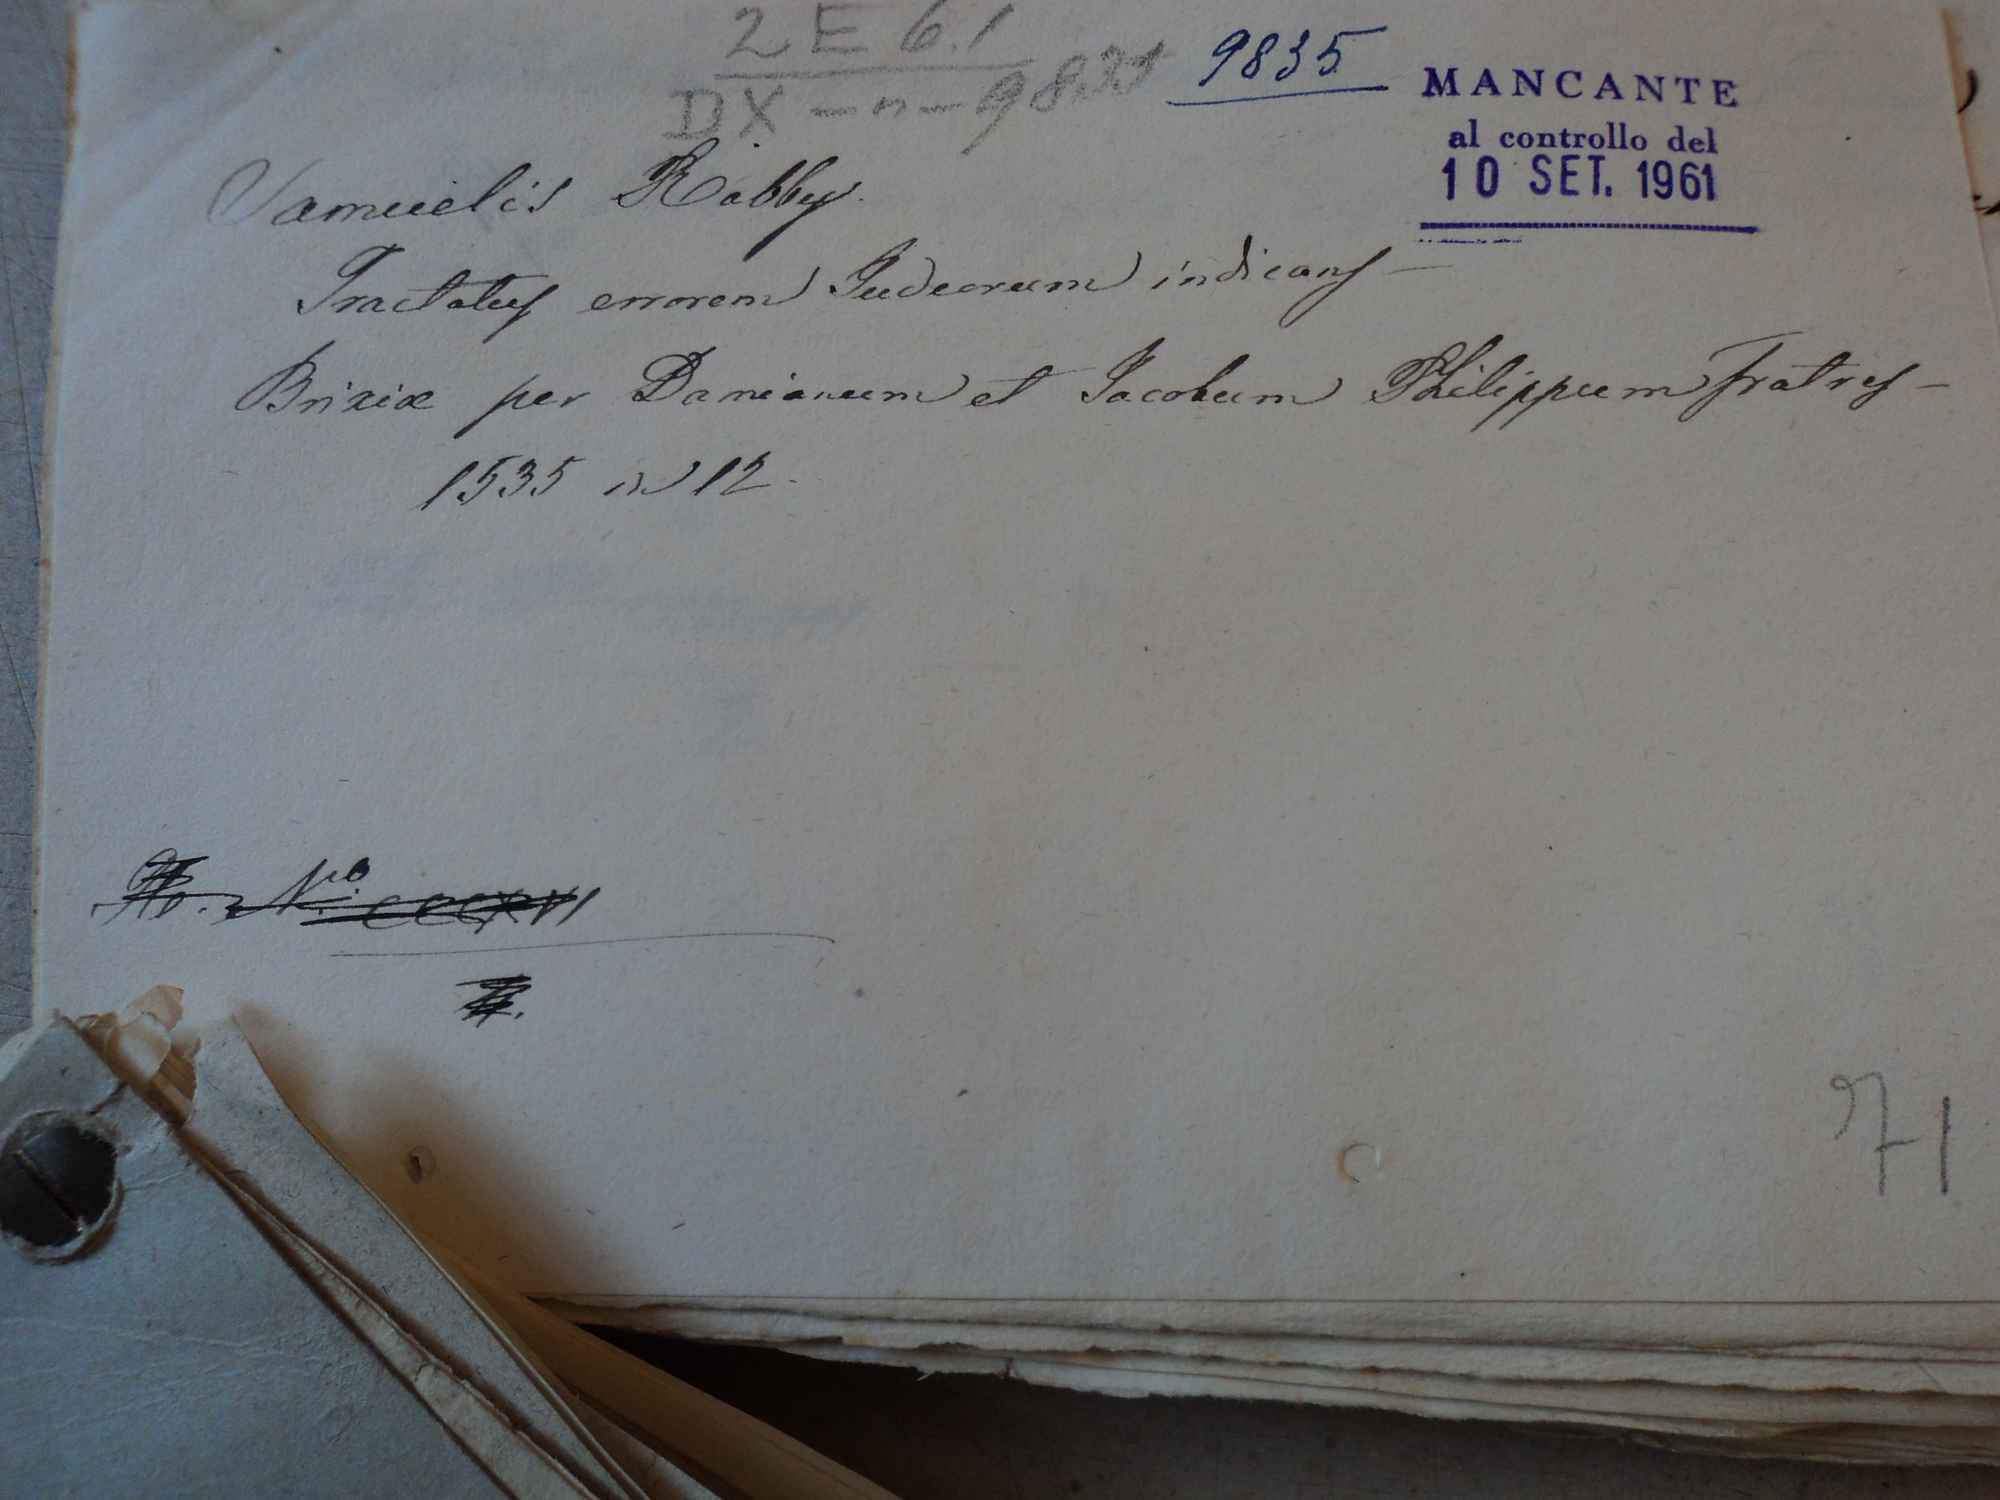 2 E 6.1
DX - n - 9831
9835
MANCANTE
al controllo del
10 SET. 1961
Samuelis Rabby.
Tractatus errorem Judeorum indicans -
Brixiæ per Damianum et Jacobum Philippum Fratres -
1535 in 12.
No. CCCXVI
71